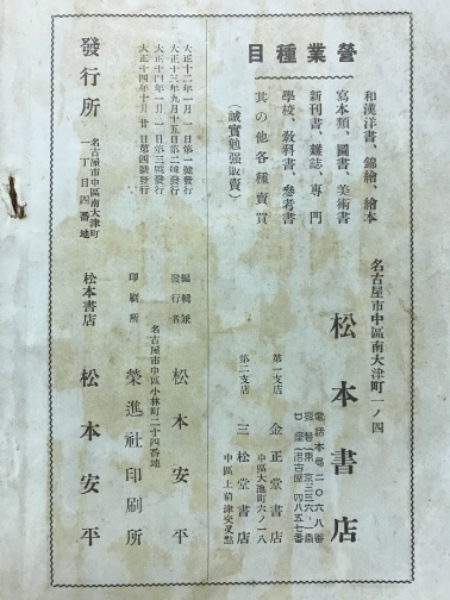 營業種目
和漢洋書、錦繪、繪本
寫本類、圖書、美術書
新刊書、雜誌、專門
學校、敎科書、參考書
其の他各種賣買
(誠實勉强販賣)
名古屋市中區南大津町一ノ四
松本書店
電話本局二〇六八番
第一支店 金正堂書店
中區大池町六ノ一八
第二支店 三松堂書店
中區上前津交叉點
大正十二年一月一日第一號發行
大正十三年九月十五日第二號發行
大正十四年一月一日第三號發行
大正十四年十月廿日第四號發行
編輯兼發行者 松本安平
名古屋市中區小林町二十四番地
印刷所 榮進社印刷所
發行所
名古屋市中區南大津町
一丁目四番地
松本書店 松本安平